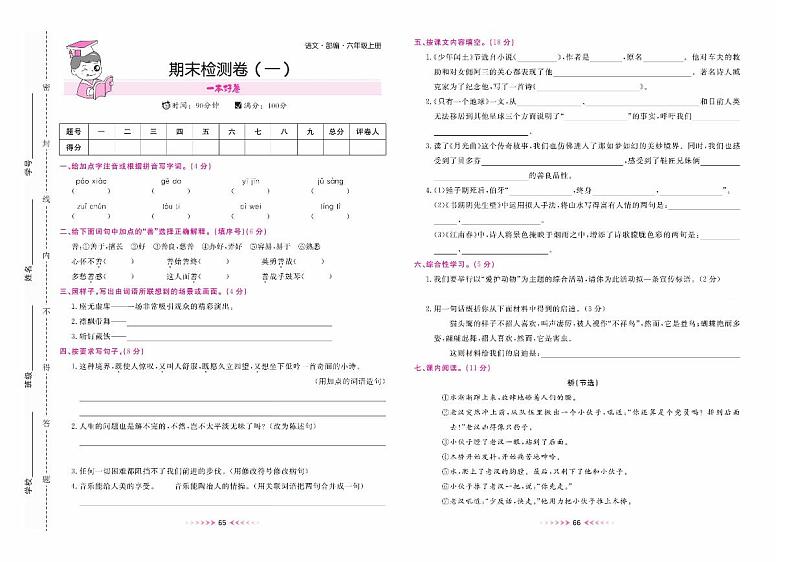 语文·部编·六年级上册
期末检测卷（一）
一本好卷
时间：90分钟 满分：100分
题号 一 二 三 四 五 六 七 八 九 总分 评卷人
得分
一、给加点字注音或根据拼音写字词。(4分)
páo xiào gē da yī jīn jǔ sàng
( ) ( ) ( ) ( )
zuǐ chún ( ) dǒu tí ( ) āi wèi ( ) tíng tī ( )
二、给下面词句中加点的“善”选择正确解释。(填序号)(6分)
善:①善于,擅长 ②好 ③善良,慈善 ④办好,弄好 ⑤容易,易于 ⑥熟悉
心怀不善( ) 善始善终( ) 英勇善战( )
多愁善感( ) 这人面善( ) 善战手鼓琴( )
三、照样子,写出由词语所联想到的场景或画面。(4分)
1.座无虚席——一场非常吸引观众的精彩演出。
2.漂飘带舞——
3.斩钉截铁——
四、按要求写句子。(8分)
1.这种境界,既使人惊叹,又叫人舒服,既愿久立四望,又想坐下低吟一首奇丽的小诗。
(用加点的词语造句)
2.人生的问题也是解不完的,不然,岂不太平淡无味了吗？(改为陈述句)
3.任何一切困难都阻挡不了我们前进的步伐。(用修改符号修改病句)
4.音乐能给人美的享受。 音乐能陶冶人的情操。(用关联词语把两句合并成一句)
65
五、按课文内容填空。(18分)
1.《少年闰土》节选自小说《 》,作者是 ,原名 。他对车夫的救
助和对女佣阿三的关心都表现了他 。著名诗人臧
克家为了纪念他,写了一首诗《 》。
2.《只有一个地球》一文,从 、 和目前人类
无法移居到其他星球三个方面说明了“ ”的事实,呼吁我们
。
3.读了《月光曲》这个传奇故事,我们也仿佛进入了那如梦如幻的美妙境界。同时,我们也感
受到了贝多芬 ,感受到了鞋匠兄妹俩
的善良品性。
4.(1)锤子期死后,伯牙“ ,终身 。”
(2)《书湖阴先生壁》中运用拟人手法,将山水写得富有人情的两句是:
, 。
(3)《江南春》中,诗人将景色掩映于烟雨之中,增添了诗歌朦胧色彩的两句是:
, 。
六、综合性学习。(5分)
1.我们要举行以“爱护动物”为主题的综合活动,请你为此活动拟一条宣传标语。(2分)
2.用一句话概括你从下面材料中得到的启迪。(3分)
猫头鹰的样子不招人喜欢,叫声凄厉,被人视作“不祥鸟”,然而,它是益鸟;蝴蝶艳丽多
姿,翩跹起舞,招人喜欢,然而,它是害虫。
这则材料给我们的启迪是:
七、课内阅读。(11分)
桥(节选)
①水渐渐蹿上来,放肆地舔着人们的腰。
②老汉突然冲上前,从队伍里揪出一个小伙子,吼道:“你还算是个党员吗？排到后面
去！”老汉凶得像只豹子。
③小伙子瞪了老汉一眼,站到了后面。
④木桥开始发抖,开始痛苦地呻吟。
⑤水,爬上了老汉的胸膛。最后,只剩下了他和小伙子。
⑥小伙子推了老汉一把,说:“你先走。”
⑦老汉吼道:“少废话,快走。”他用力把小伙子推上木桥。
66
学号
姓名
班级
学校
密 封 线 内 不 得 答 题